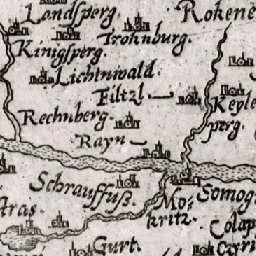 Landsperg.
Rokene
Troknburg.
Kinigsperg.
Lichtnwald.
Filtzl
Keple
perg.
Rechnberg.
Rayn
Schrauffus.
Mo:
kritz.
Somog
Gurt.